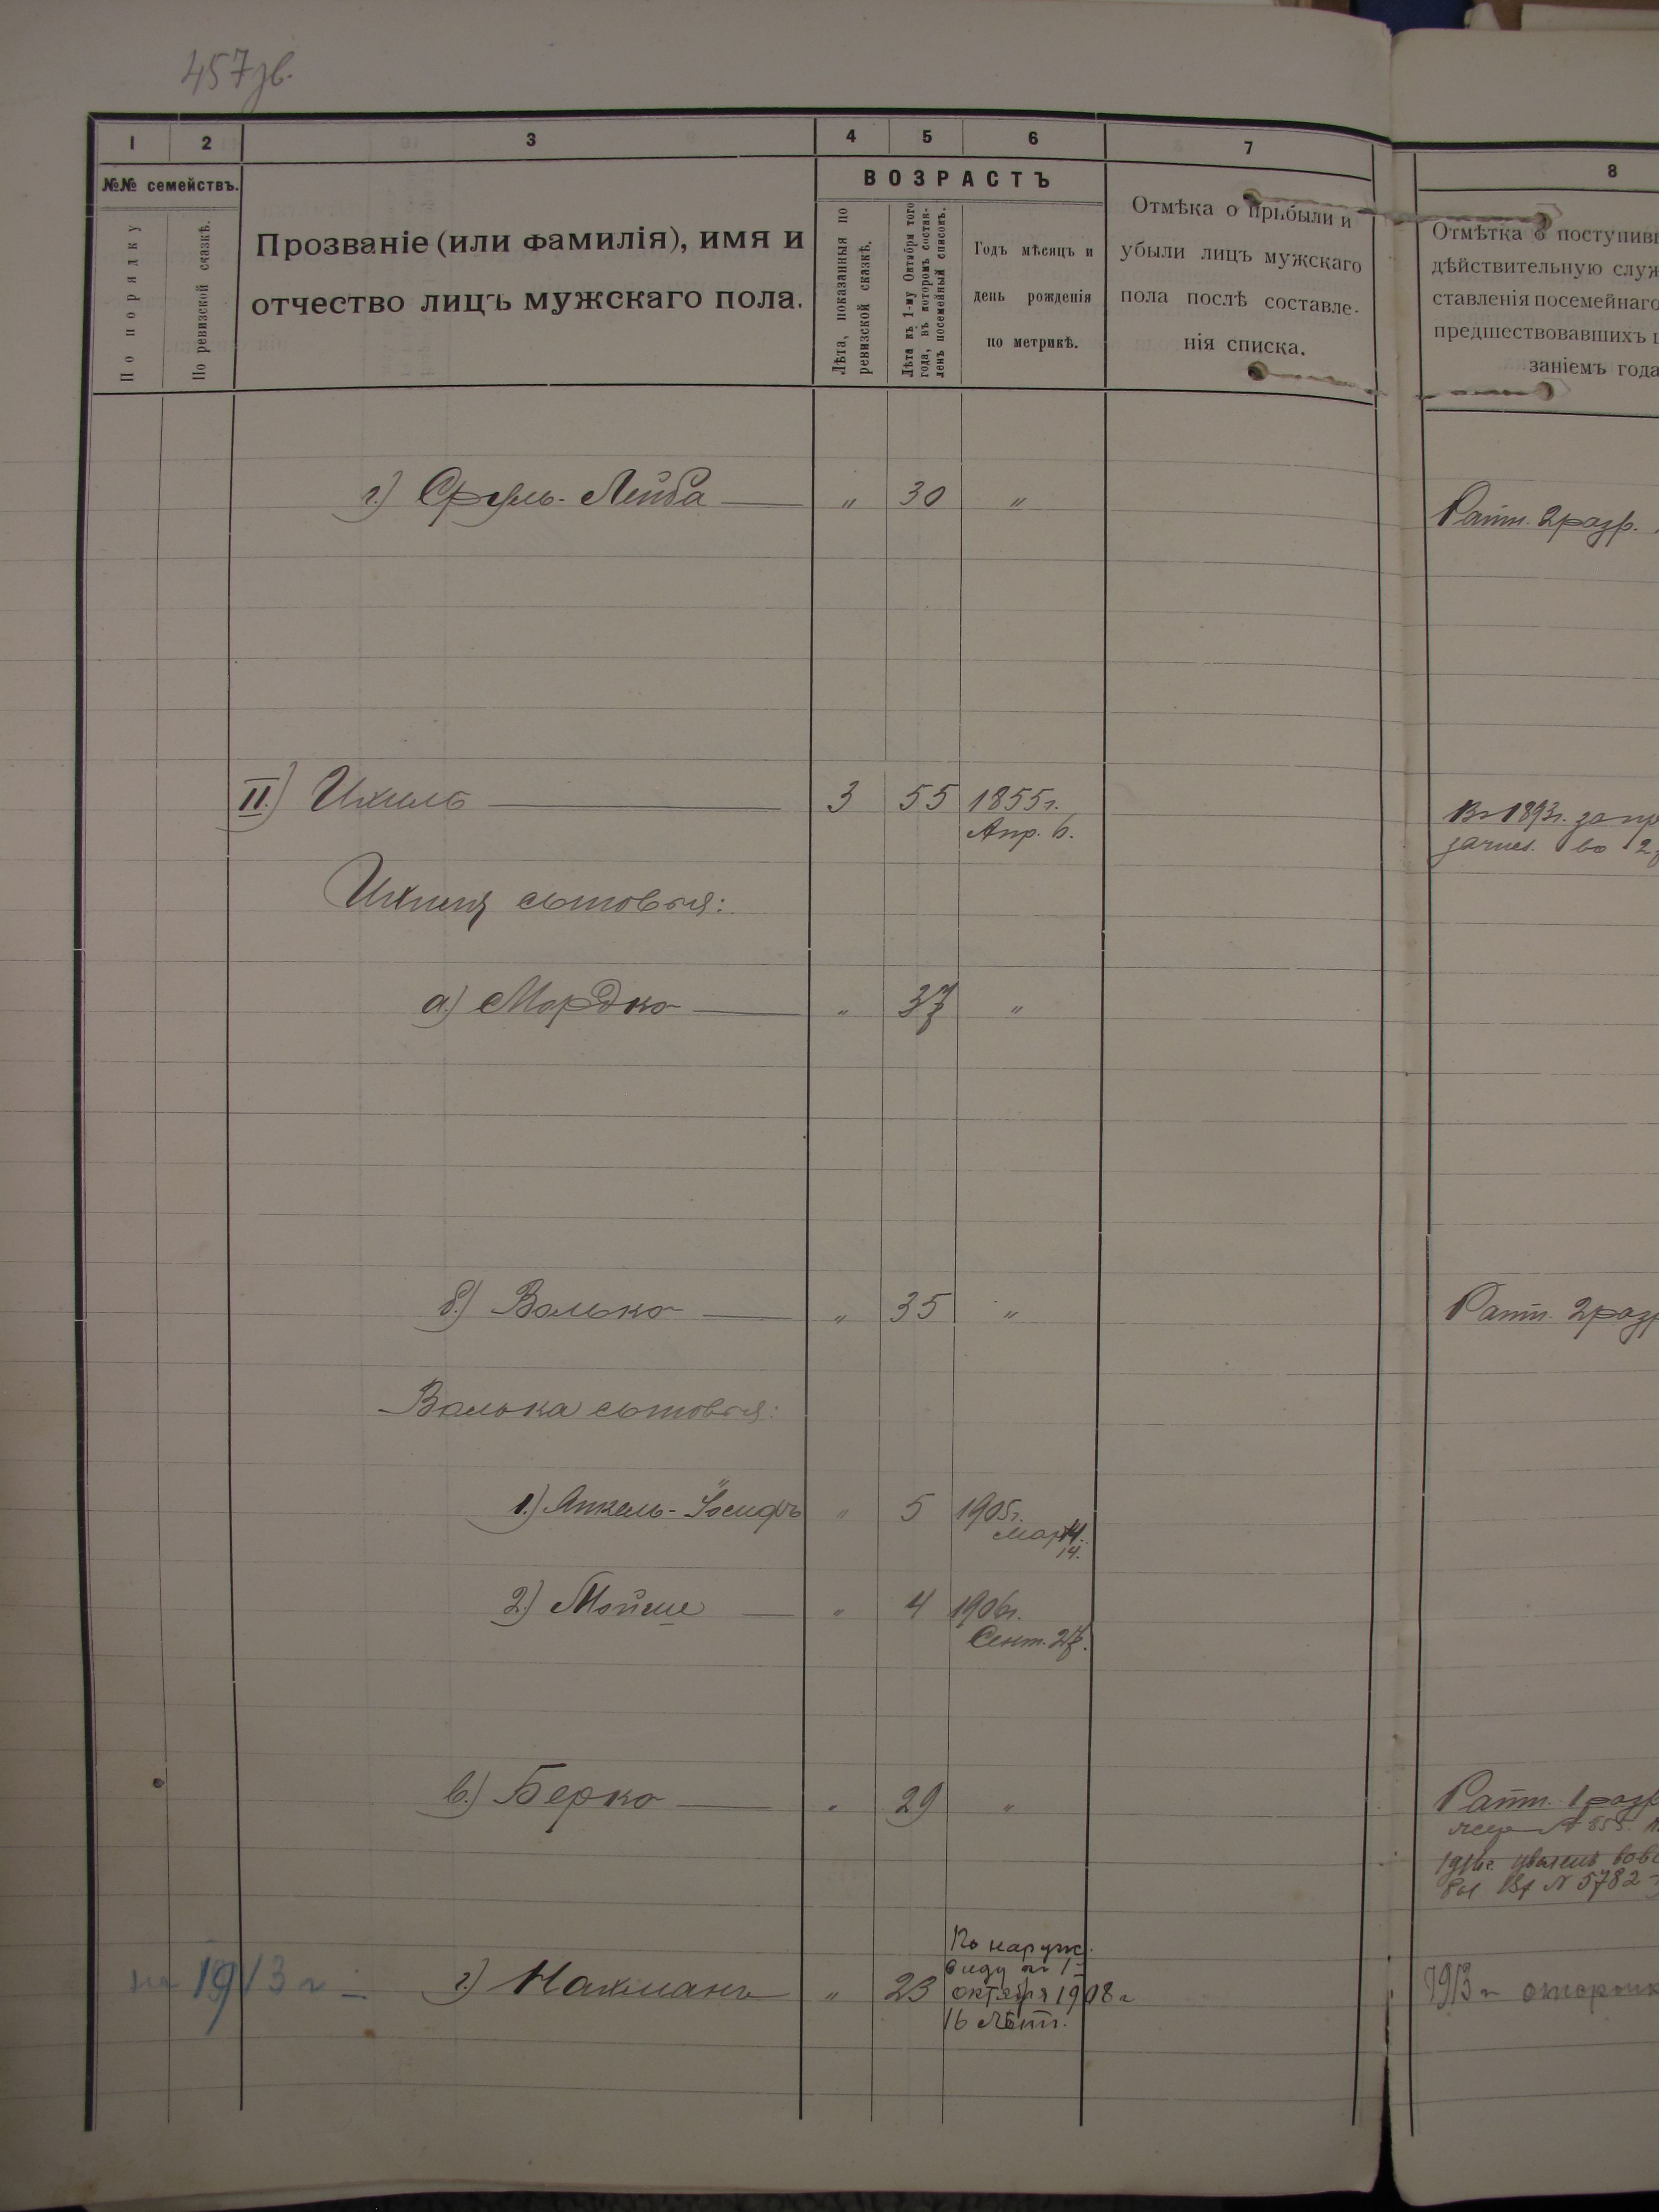 457зв.
1 2 3 4 5 6 7 8
№№ семействъ.
По порядку
По ревизской сказкѣ.
Прозваніе (или фамилія), имя и
отчество лицъ мужскаго пола.
ВОЗРАСТЪ
Лѣта, показанныя по
ревизской сказкѣ.
Лѣта къ 1-му Октября того
года, въ которомъ состав-
ленъ посемейный списокъ.
Годъ мѣсяцъ и
день рожденія
по метрикѣ.
Отмѣка о прибыли и
убыли лицъ мужскаго
пола послѣ составле-
нія списка.
Отмѣтка о поступивш
дѣйствительную служ
ставленія посемейнаго
предшествовавшихъ
заніемъ года
г.) Сруль-Лейба — " 30 "
Ратн. 2 разр.
II.) Ихиль — 3 55 1855г.
Апр. 6.
Въ 1893г. за пр
зачис. во 2
Ихиля сыновья:
а.) Мордко — " 37 "
б.) Волько — " 35 "
Ратн. 2 разр
Волька сыновья:
1.) Анкель-Іосифъ " 5 1905г.
Март. 14.
14.
2.) Мойше — " 4 1906г.
Сент. 27.
в.) Берко — " 29 "
Ратн. 1 разр
№ 5782
на 1913 г —
г.) Нахманъ " 23
По наруж.
виду на 1-е
октября 1908 г
16 лѣтъ.
1913 г отсрочк